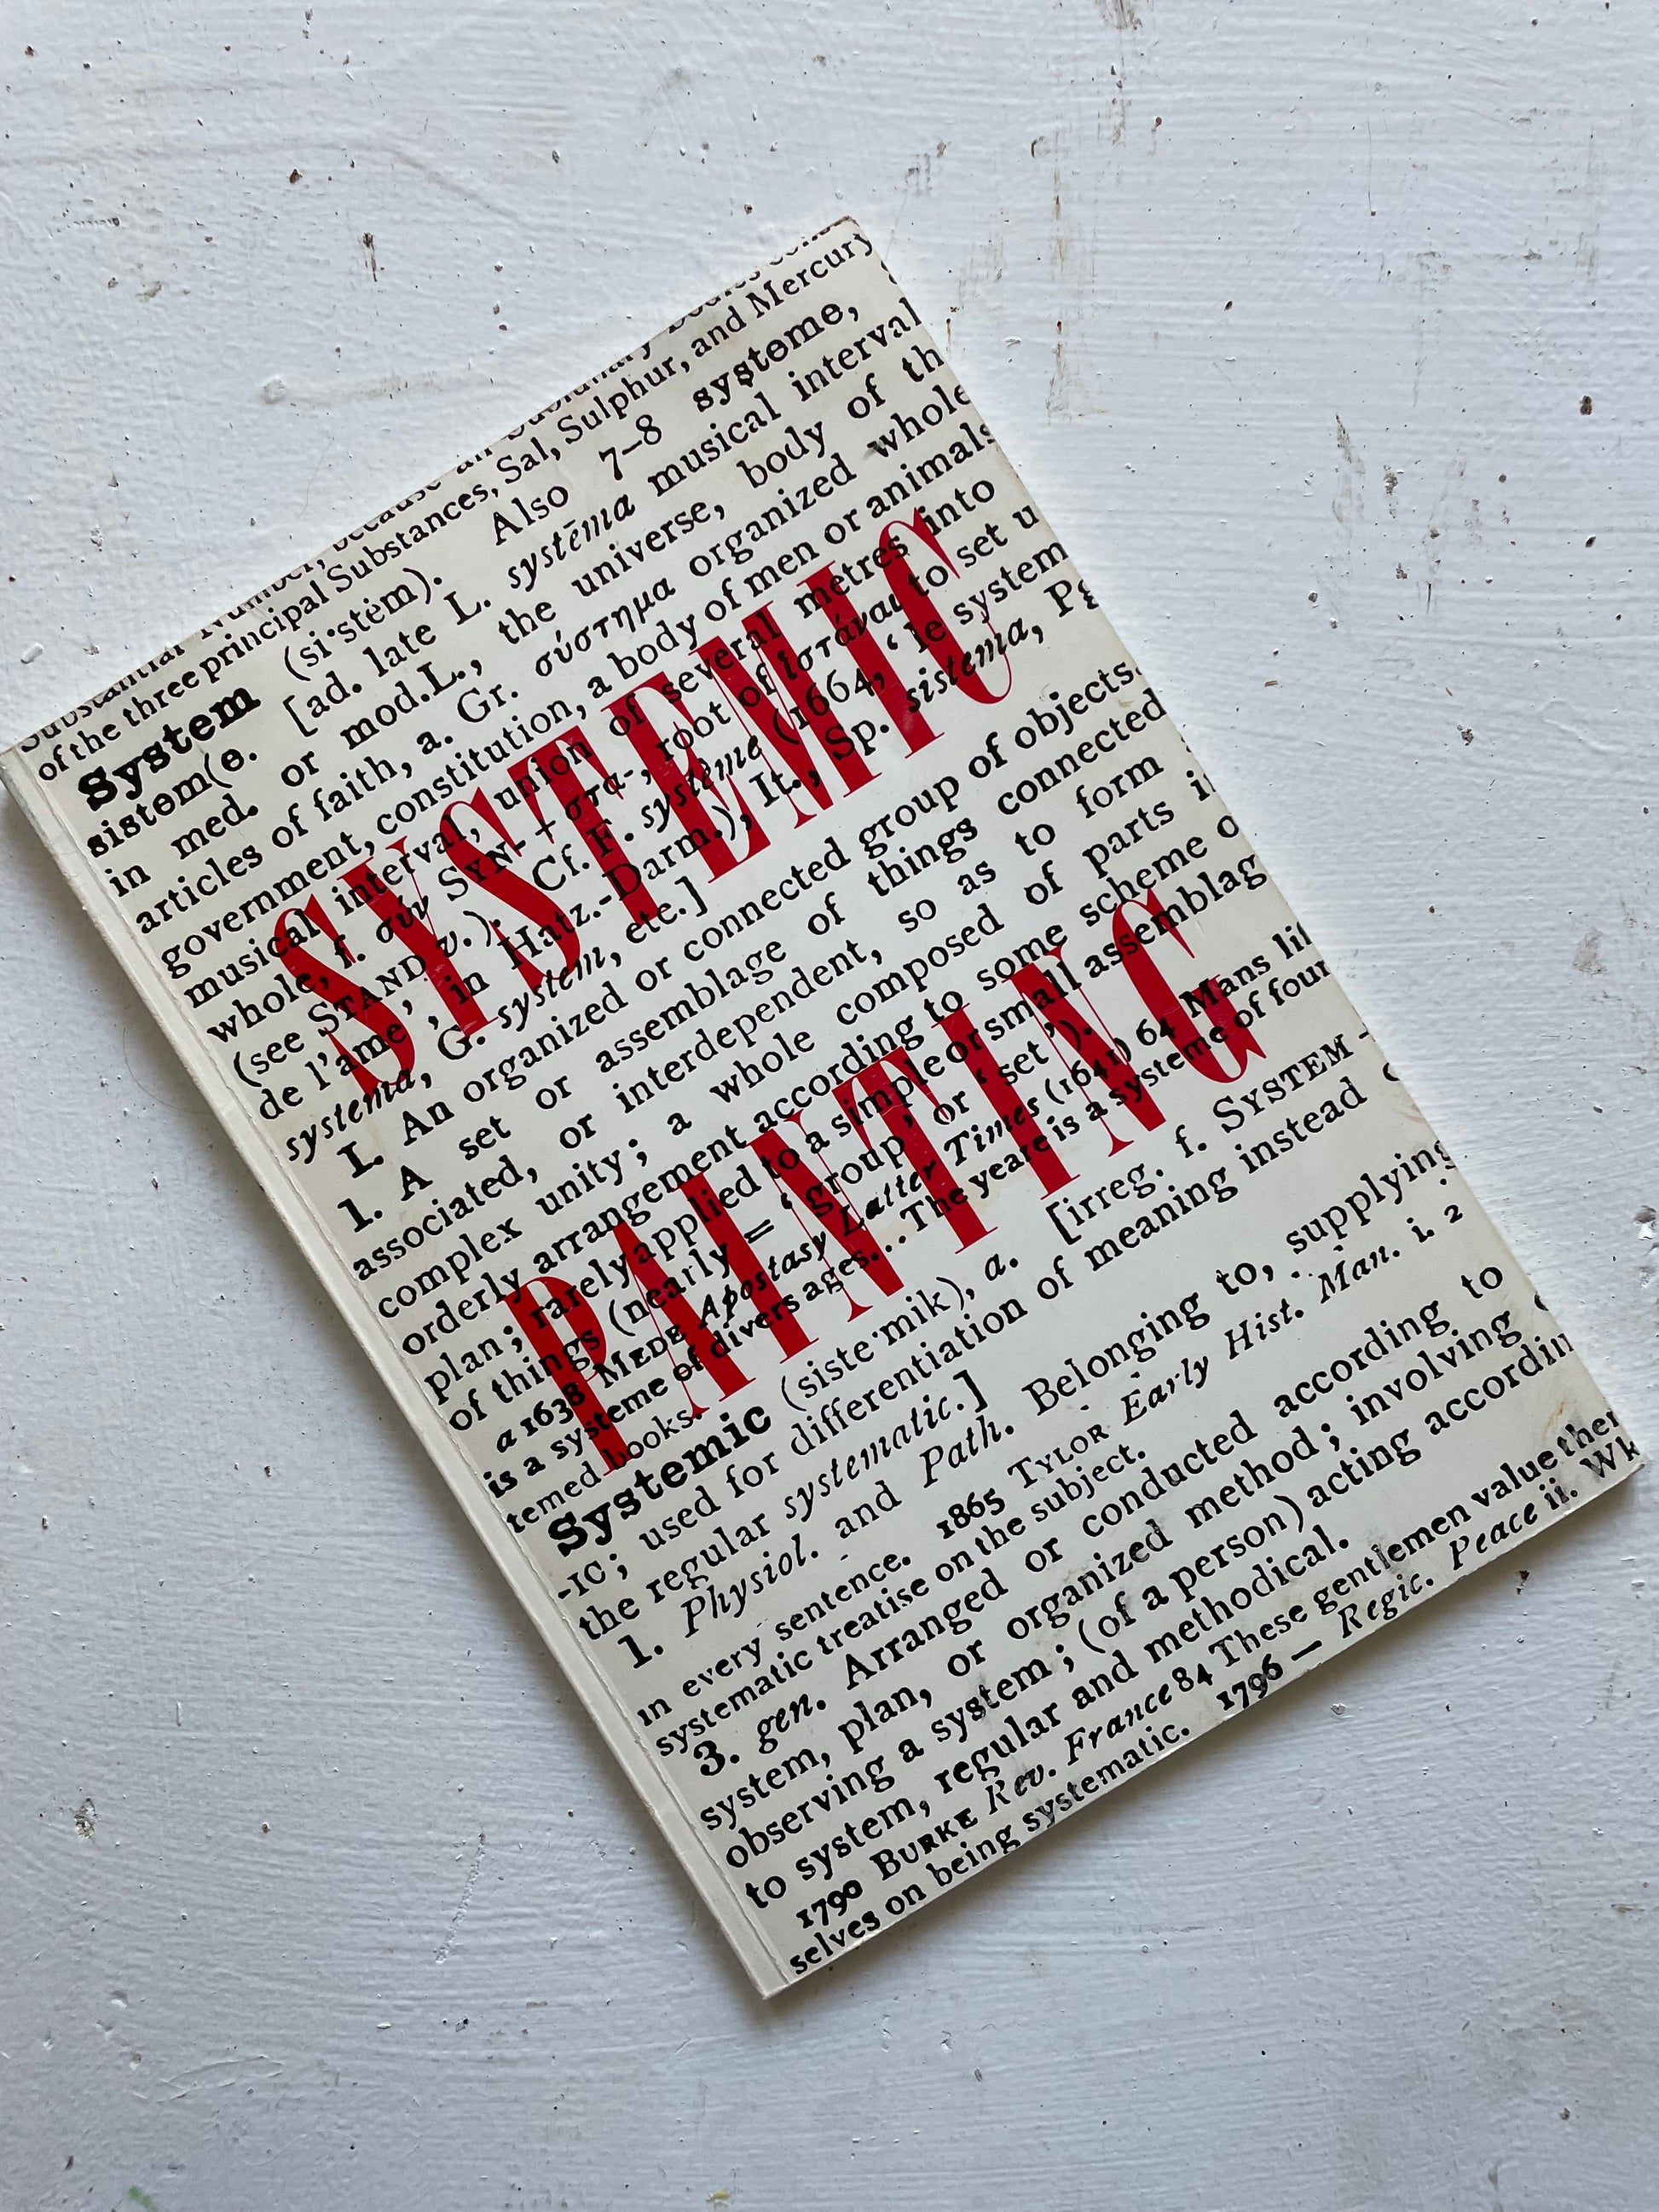 Substantial Number, because all Sublunary Bodies
of the three principal Substances, Sal, Sulphur, and Mercury
System (si·stėm). Also 7–8 systeme,
sistem(e. [ad. late L. systēma musical interval
in med. or mod.L., the universe, body of th
articles of faith, a. Gr. σύστημα organized whole
government, constitution, a body of men or animals
musical interval, union of several metres into
whole, f. σύν SYN- + στα-, root of ἱστάναι to set u
(see STAND v.). Cf. F. système (1664, ‘ le system
de l'ame’, in Hatz.-Darm.), It., Sp. sistema, Pg
systema, G. system, etc.]
SYSTEMIC
I. An organized or connected group of objects.
1. A set or assemblage of things connected
associated, or interdependent, so as to form
complex unity; a whole composed of parts i
orderly arrangement according to some scheme o
plan; rarely applied to a simple or small assemblag
of things (nearly = ‘ group ’ or ‘ set ’).
a 1638 MEDE Apostasy Latter Times (1641) 64 Mans lif
is a systeme of divers ages... The yeare is a systeme of four
temed books.
PAINTING
Systemic (siste·mik), a. [irreg. f. SYSTEM -
-IC; used for differentiation of meaning instead
the regular systematic.]
1. Physiol. and Path. Belonging to, supplying
in every sentence. 1865 TYLOR Early Hist. Man. i. 2
systematic treatise on the subject.
3. gen. Arranged or conducted according to
system, plan, or organized method; involving
observing a system; (of a person) acting accordin
to system, regular and methodical.
1790 BURKE Rev. France 84 These gentlemen value them
selves on being systematic. 1796 — Regic. Peace ii. Wh